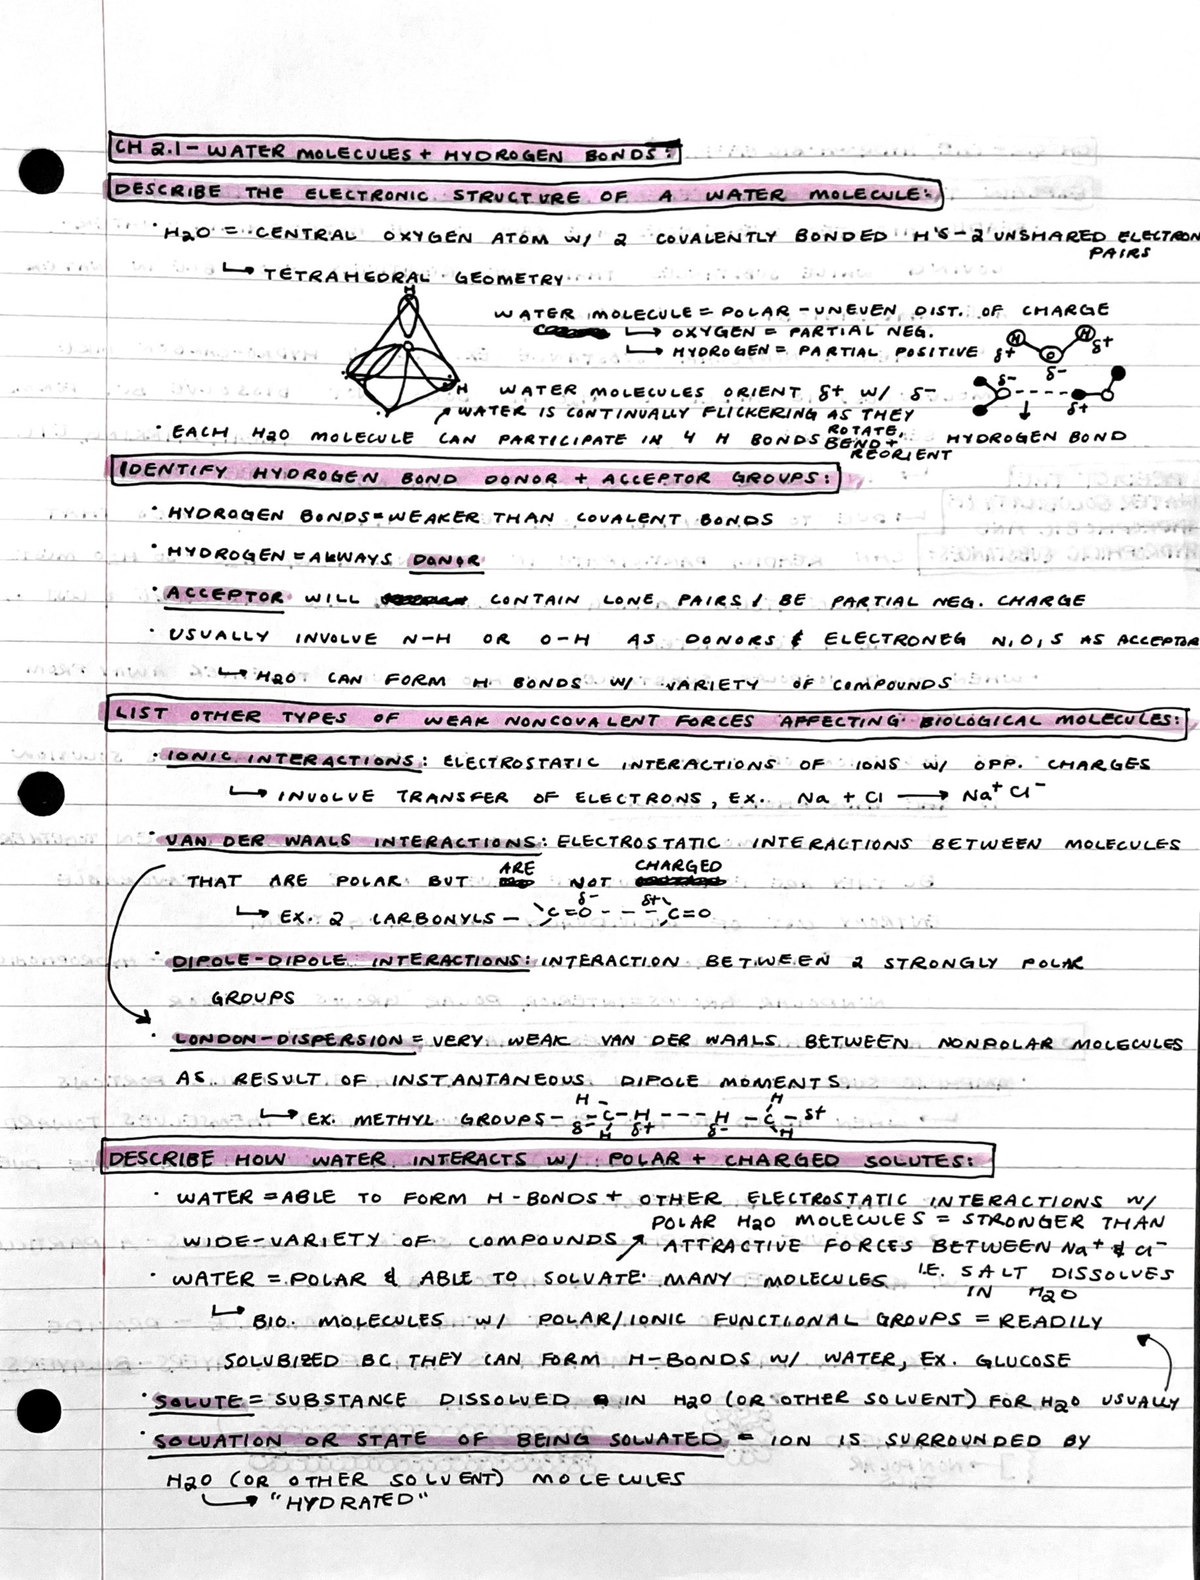 CH 2.1 - WATER MOLECULES + HYDROGEN BONDS:
DESCRIBE THE ELECTRONIC STRUCTURE OF A WATER MOLECULE:
· H2O = CENTRAL OXYGEN ATOM W/ 2 COVALENTLY BONDED H'S - 2 UNSHARED ELECTRON
PAIRS
↳ TETRAHEDRAL GEOMETRY
H
H
WATER MOLECULE = POLAR - UNEVEN DIST. OF CHARGE
↳ OXYGEN = PARTIAL NEG.
↳ HYDROGEN = PARTIAL POSITIVE
H H
δ+ O δ+
δ-
WATER MOLECULES ORIENT δ+ W/ δ-
δ- δ+
HYDROGEN BOND
WATER IS CONTINUALLY FLICKERING AS THEY
ROTATE,
BEND +
REORIENT
· EACH H2O MOLECULE CAN PARTICIPATE IN 4 H BONDS
IDENTIFY HYDROGEN BOND DONOR + ACCEPTOR GROUPS:
· HYDROGEN BONDS = WEAKER THAN COVALENT BONDS
· HYDROGEN = ALWAYS DONOR
· ACCEPTOR WILL CONTAIN LONE PAIRS / BE PARTIAL NEG. CHARGE
· USUALLY INVOLVE N-H OR O-H AS DONORS & ELECTRONEG N, O, S AS ACCEPTOR
↳ H2O CAN FORM H BONDS W/ VARIETY OF COMPOUNDS
LIST OTHER TYPES OF WEAK NONCOVALENT FORCES AFFECTING BIOLOGICAL MOLECULES:
· IONIC INTERACTIONS: ELECTROSTATIC INTERACTIONS OF IONS W/ OPP. CHARGES
↳ INVOLVE TRANSFER OF ELECTRONS, EX. Na + Cl → Na+ Cl-
· VAN DER WAALS INTERACTIONS: ELECTROSTATIC INTERACTIONS BETWEEN MOLECULES
THAT ARE POLAR BUT ARE NOT CHARGED
↳ EX. 2 CARBONYLS - C=O δ- --- δ+ C=O
· DIPOLE-DIPOLE INTERACTIONS: INTERACTION BETWEEN 2 STRONGLY POLAR
GROUPS
· LONDON-DISPERSION = VERY WEAK VAN DER WAALS BETWEEN NONPOLAR MOLECULES
AS RESULT OF INSTANTANEOUS DIPOLE MOMENTS.
H H
↳ EX. METHYL GROUPS - C-H --- H - C - δ+
δ- H δ+ δ- H
DESCRIBE HOW WATER INTERACTS W/ POLAR + CHARGED SOLUTES:
· WATER = ABLE TO FORM H-BONDS + OTHER ELECTROSTATIC INTERACTIONS W/
WIDE-VARIETY OF COMPOUNDS
POLAR H2O MOLECULES = STRONGER THAN
ATTRACTIVE FORCES BETWEEN Na+ & Cl-
I.E. SALT DISSOLVES
IN H2O
· WATER = POLAR & ABLE TO SOLVATE MANY MOLECULES
↳ BIO. MOLECULES W/ POLAR/IONIC FUNCTIONAL GROUPS = READILY
SOLUBIZED BC THEY CAN FORM H-BONDS W/ WATER, EX. GLUCOSE
· SOLUTE = SUBSTANCE DISSOLVED IN H2O (OR OTHER SOLVENT) FOR H2O USUALLY
· SOLVATION OR STATE OF BEING SOLVATED = ION IS SURROUNDED BY
H2O (OR OTHER SOLVENT) MOLECULES
↳ "HYDRATED"